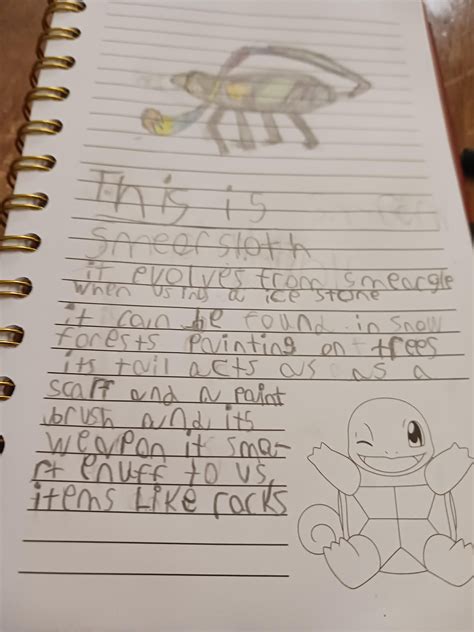 This is
smearsloth
it evolves from smeargle
when using a ice stone
it can be found in snow
forests painting on trees
its tail acts as as a
scarf and a paint
brush and its
weapon it smar
rt enuff to us
items like rocks